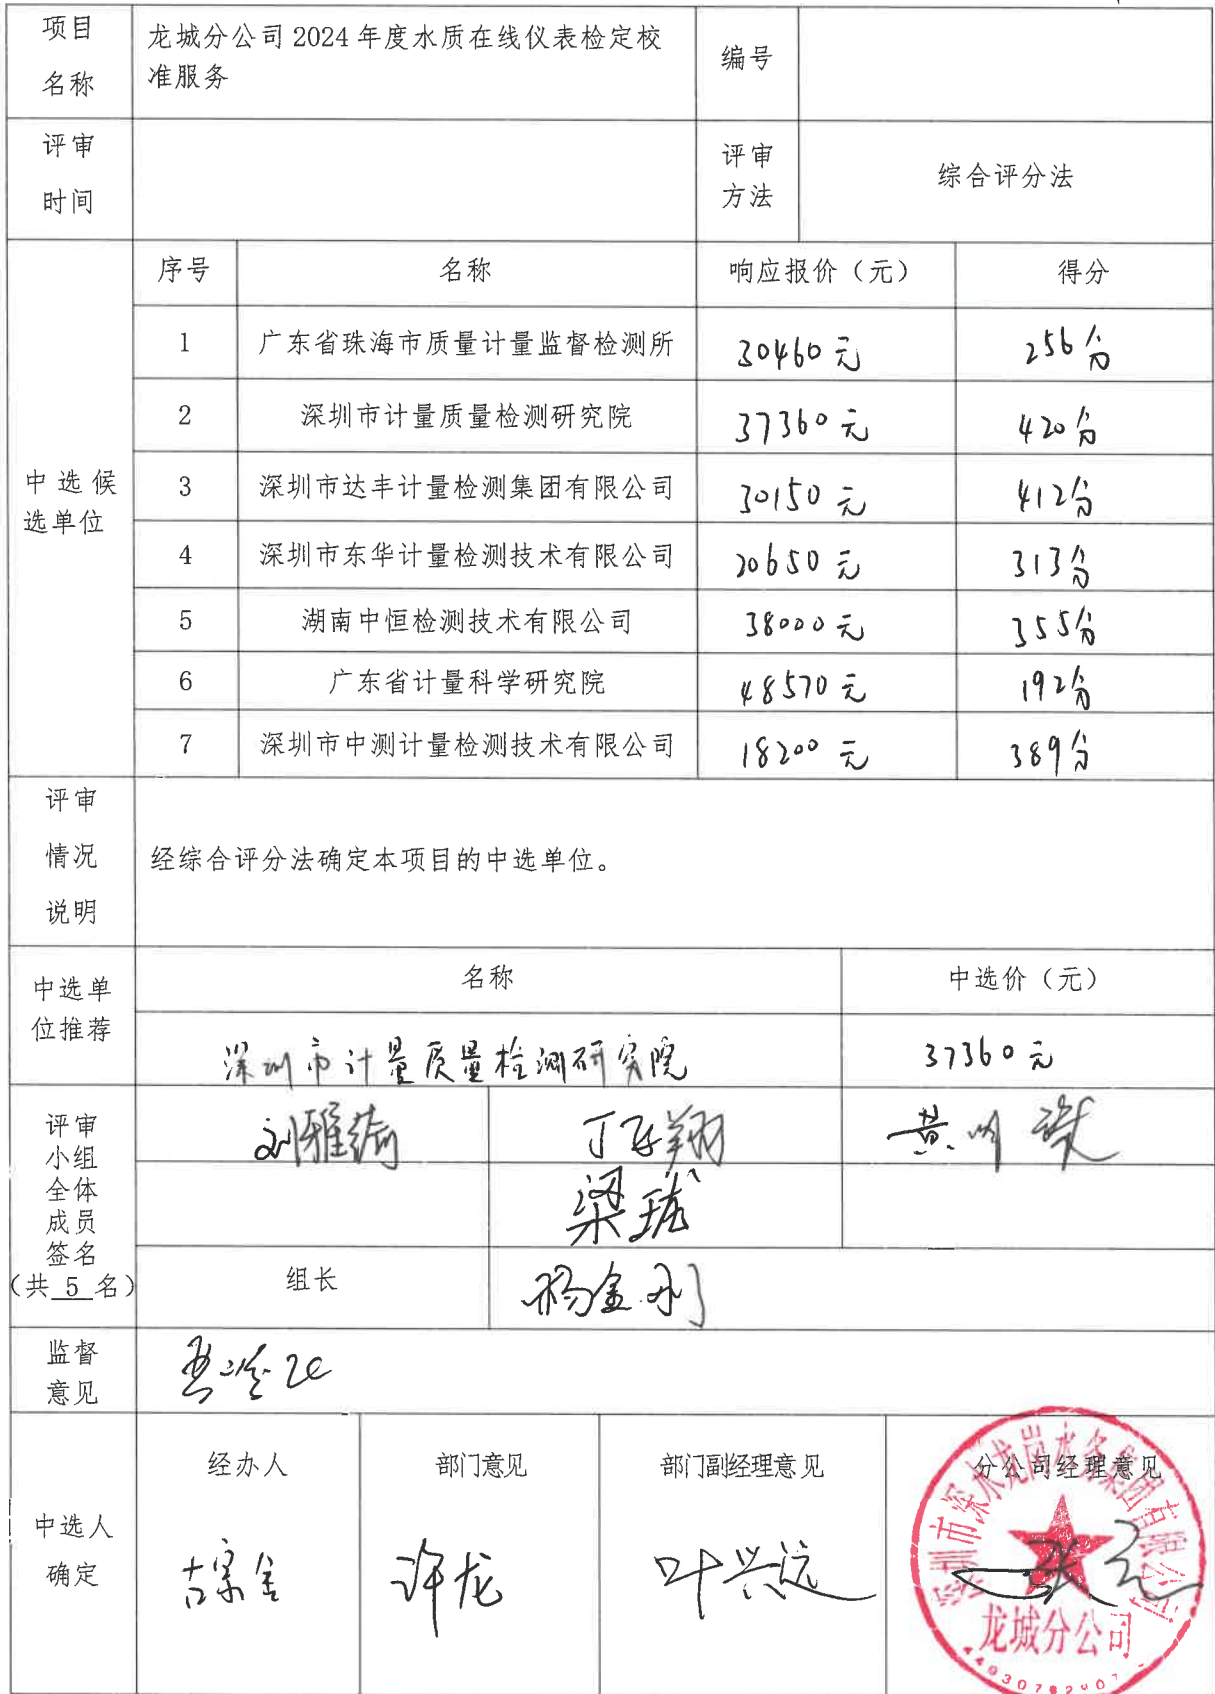 项目
名称
龙城分公司 2024 年度水质在线仪表检定校
准服务
编号
评审
时间
评审
方法
综合评分法
中选候
选单位
序号 名称 响应报价（元） 得分
1 广东省珠海市质量计量监督检测所 30460元 256分
2 深圳市计量质量检测研究院 37360元 420分
3 深圳市达丰计量检测集团有限公司 30150元 412分
4 深圳市东华计量检测技术有限公司 20650元 313分
5 湖南中恒检测技术有限公司 38000元 355分
6 广东省计量科学研究院 48570元 192分
7 深圳市中测计量检测技术有限公司 18200元 389分
评审
情况
说明
经综合评分法确定本项目的中选单位。
中选单
位推荐
名称 中选价（元）
深圳市计量质量检测研究院 37360元
评审
小组
全体
成员
签名
（共 5 名）
刘雅绮 丁飞翔
梁珑
组长 杨金刚
监督
意见
中选人
确定
经办人 部门意见 部门副经理意见 分公司经理意见
许龙 叶兴远
深圳市深水龙岗水务集团有限公司
龙城分公司